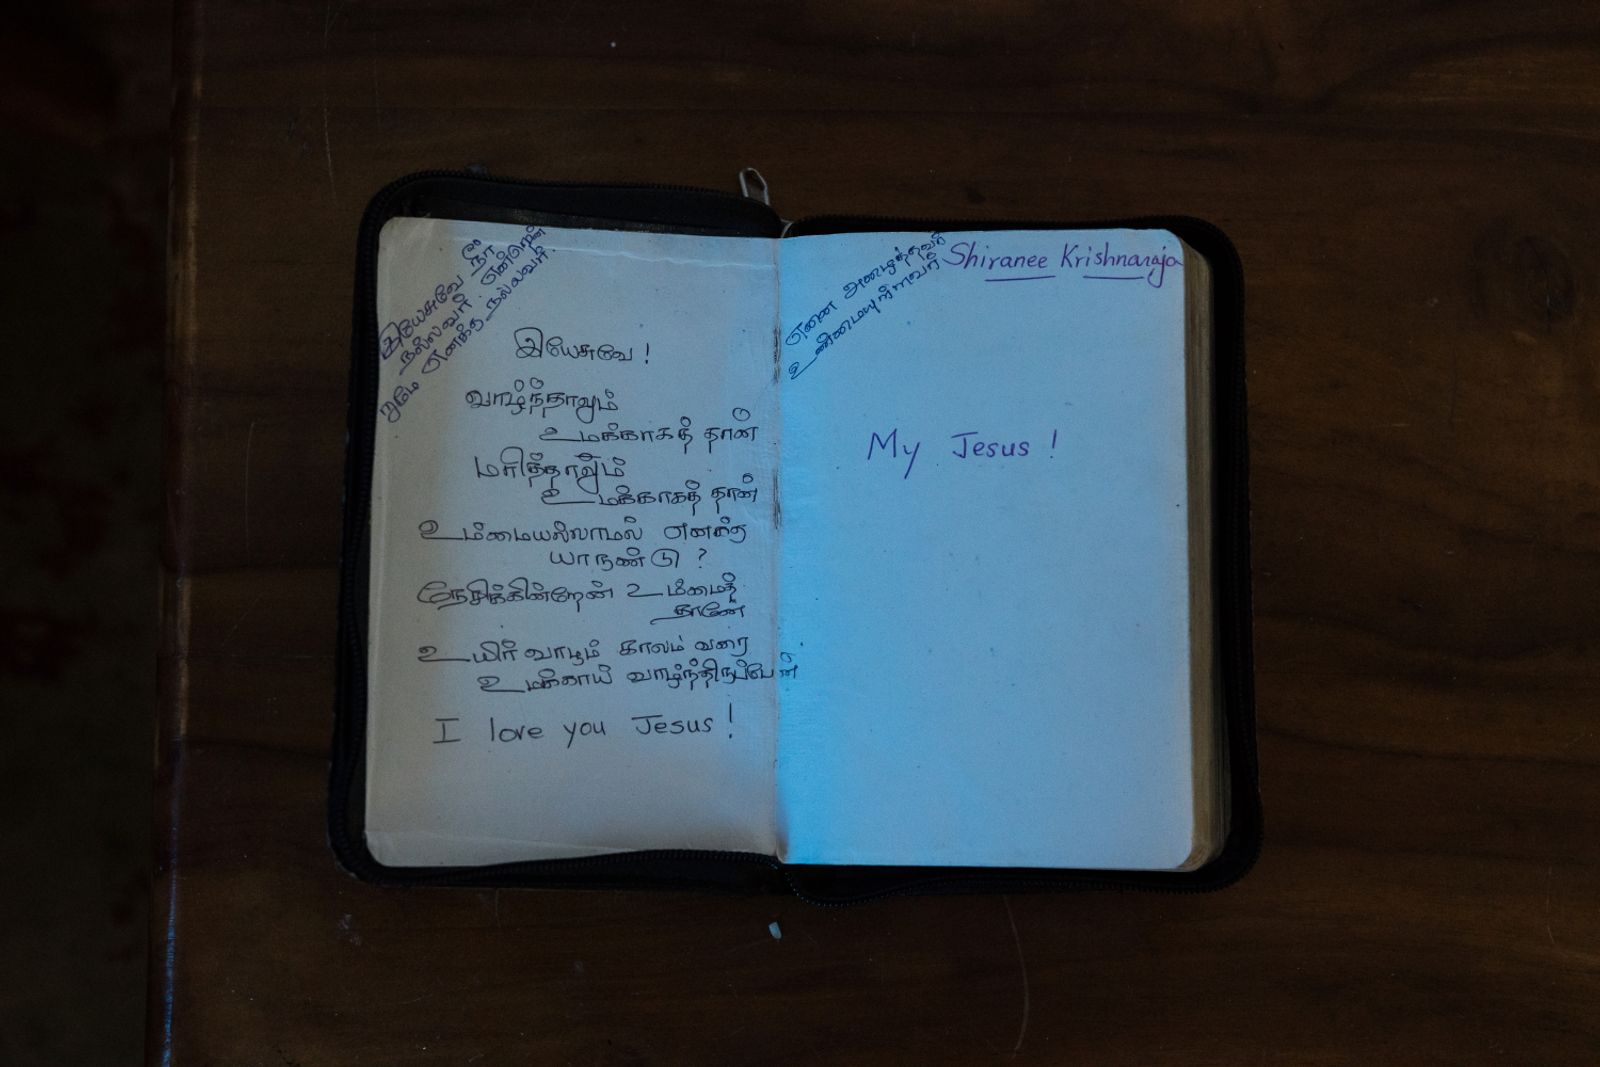 இயேசுவே நீர்
நல்லவர். என்றென்
றுமே எனக்கு நல்லவர்.
இயேசுவே !
வாழ்ந்தாலும்
உமக்காகத் தான்
மரித்தாலும்
உமக்காகத் தான்
உம்மையல்லாமல் எனக்கு
யாருண்டு ?
நேசிக்கின்றேன் உம்மைத்
தானே
உயிர் வாழும் காலம் வரை
உமக்காய் வாழ்ந்திருப்பேன்
I love you Jesus !
என்னை அழைத்தவர்
உண்மையுள்ளவர்
Shiranee Krishnaraja
My Jesus !